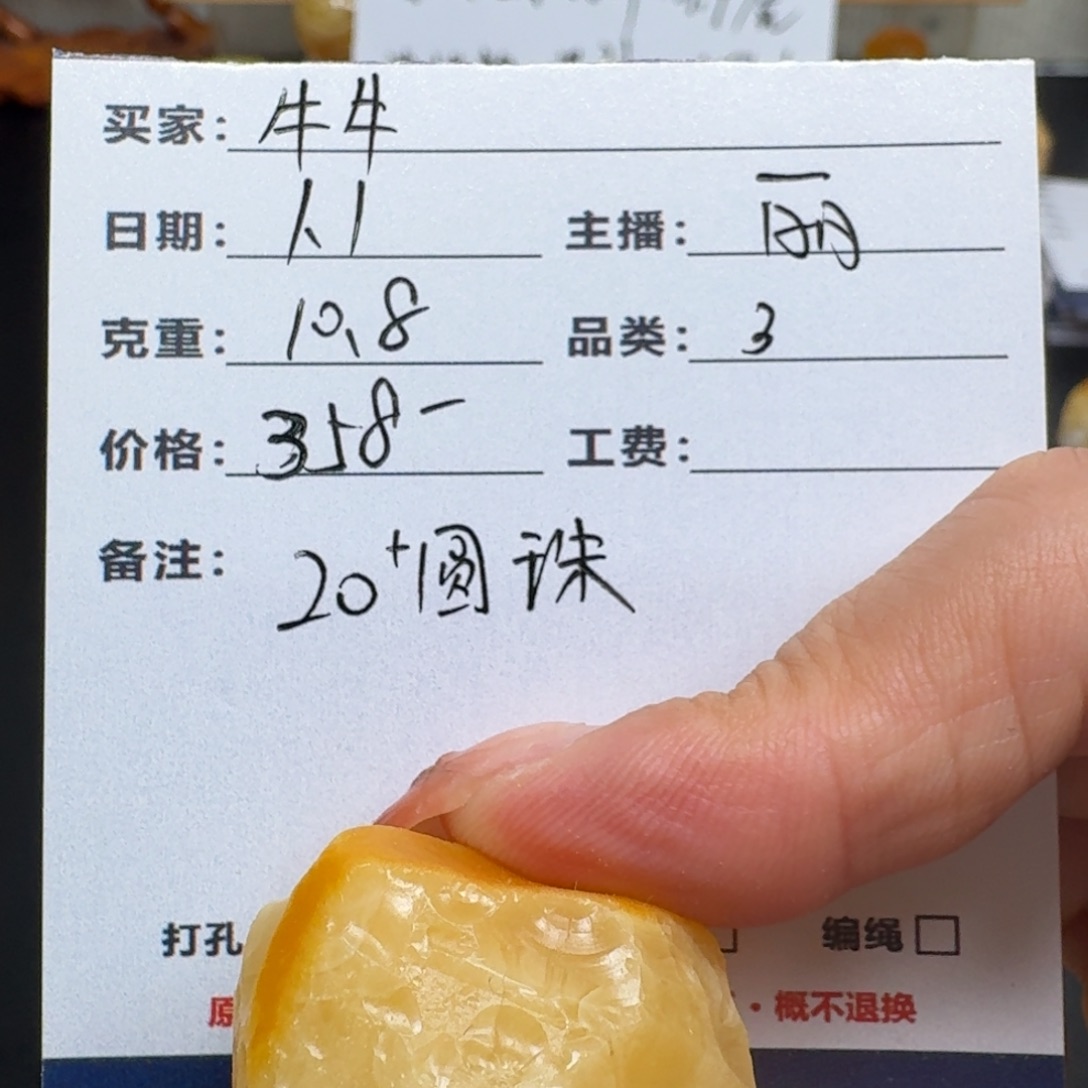 买家: 牛牛
日期: 1.1 主播: 丽
克重: 10.8 品类: 3
价格: 358-
工费:
备注: 20+圆珠
打孔 编绳
原 ·概不退换